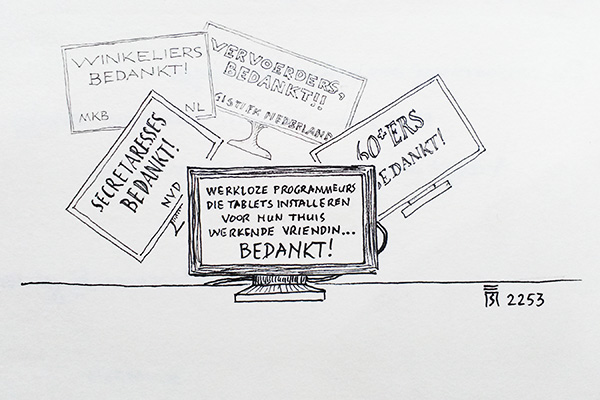 WINKELIERS
BEDANKT!
MKB NL
VERVOERDERS,
BEDANKT!!
NEDERLAND
SECRETARESSES
BEDANKT!
NVD
60+ERS
BEDANKT!
WERKLOZE PROGRAMMEURS
DIE TABLETS INSTALLEREN
VOOR HUN THUIS
WERKENDE VRIENDIN...
BEDANKT!
2253